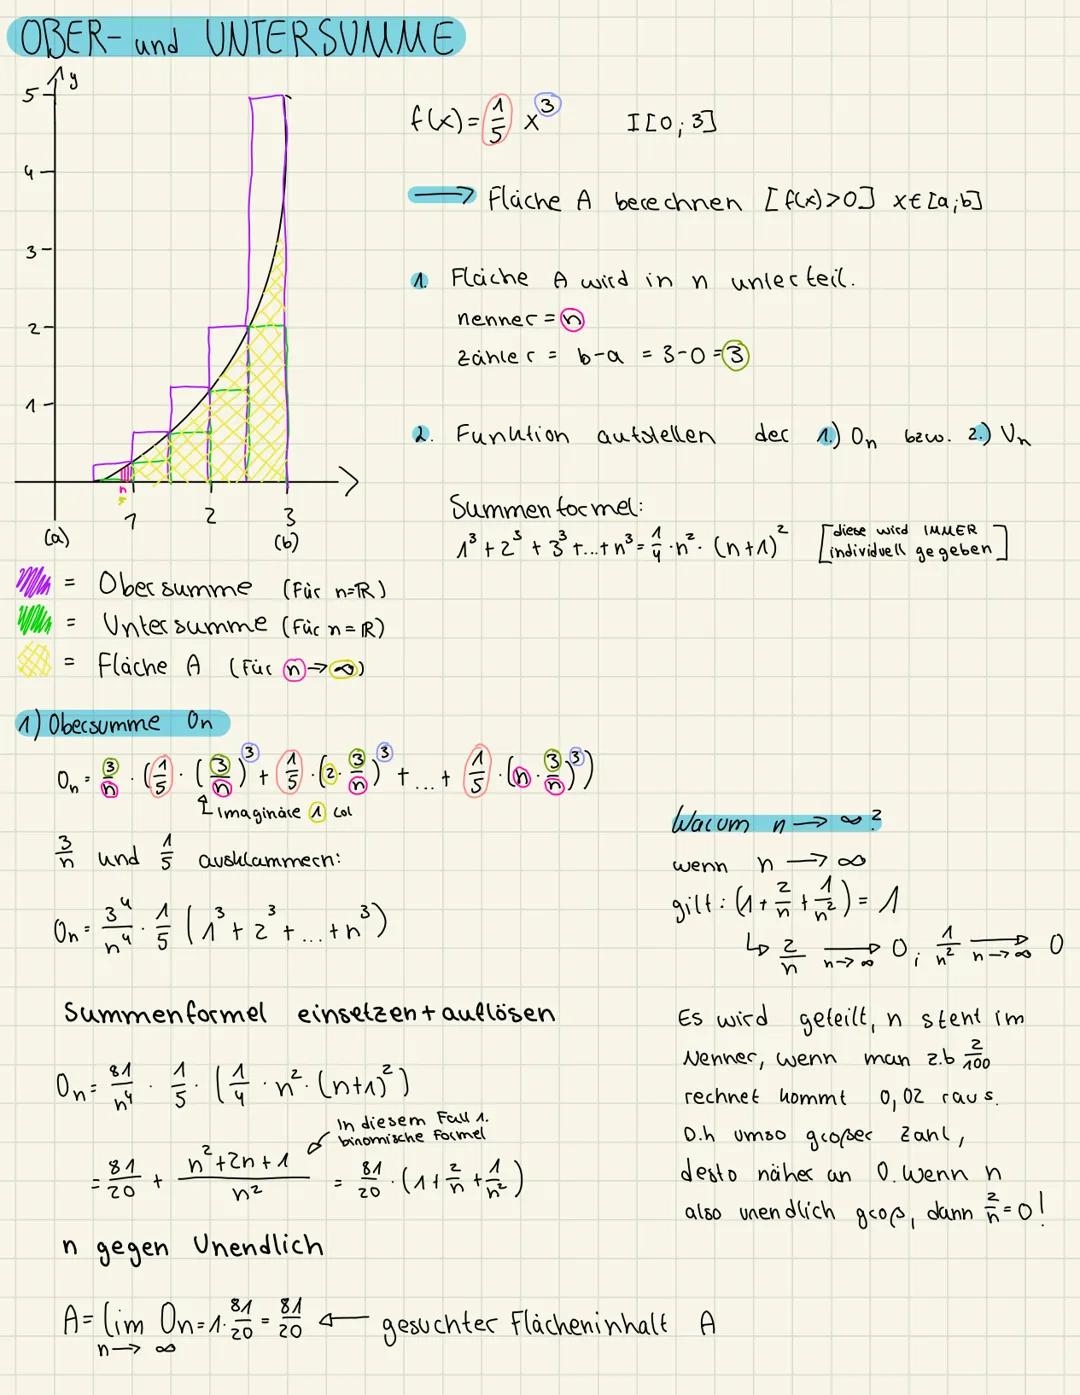 OBER- und UNTERSUMME
y
5
4
3
2
1
n
1 2 3
(a) (b)
f(x) = 1/5 x^3 I[0;3]
→ Fläche A berechnen [f(x)>0] x∈[a;b]
1. Fläche A wird in n unterteil.
nenner = n
zähler = b-a = 3-0 = 3
2. Funktion aufstellen der 1.) On bzw. 2.) Un
Summenformel:
1^3 + 2^3 + 3^3 +...+ n^3 = 1/4 · n^2 · (n+1)^2 [diese wird IMMER
individuell gegeben]
= Obersumme (Für n=ℝ)
= Untersumme (Für n=ℝ)
= Fläche A (Für n→∞)
1) Obersumme On
On = 3/n · (1/5 · (3/n)^3 + 1/5 · (2 · 3/n)^3 + ... + 1/5 · (n · 3/n)^3)
↑ Imaginäre 1 lol
3/n und 1/5 ausklammern:
On = 3^4/n^4 · 1/5 (1^3 + 2^3 + ... + n^3)
Summenformel einsetzen + auflösen
On = 81/n^4 · 1/5 · (1/4 · n^2 · (n+1)^2)
In diesem Fall 1.
binomische Formel
= 81/20 + n^2+2n+1/n^2 = 81/20 · (1 + 2/n + 1/n^2)
n gegen Unendlich
A = lim On = 1 · 81/20 = 81/20 ← gesuchter Flächeninhalt A
n→ ∞
Warum n → ∞?
wenn n → ∞
gilt: (1 + 2/n + 1/n^2) = 1
↳ 2/n →n→∞ 0; 1/n^2 →n→∞ 0
Es wird geteilt, n steht im
Nenner, wenn man z.b 2/100
rechnet kommt 0,02 raus.
D.h umso großer Zahl,
desto näher an 0. Wenn n
also unendlich groß, dann 2/n = 0!